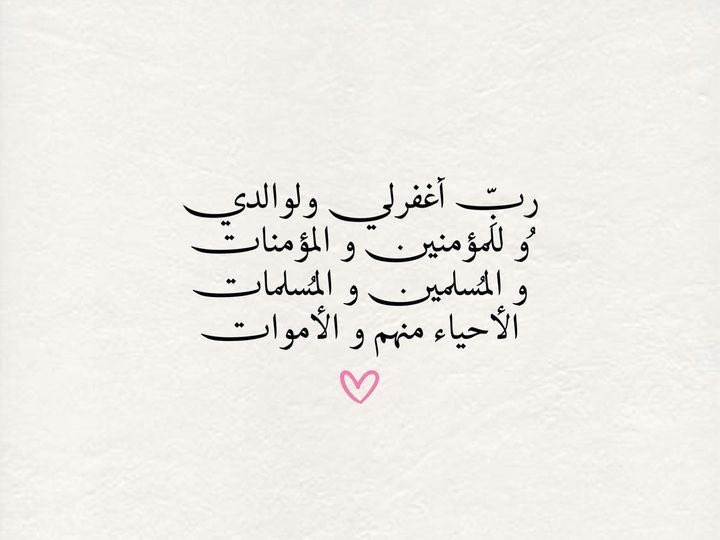 ربِّ أغفرلي ولوالدي
وُ للمؤمنين و المؤمنات
و المُسلمين و المُسلمات
الأحياء منهم و الأموات